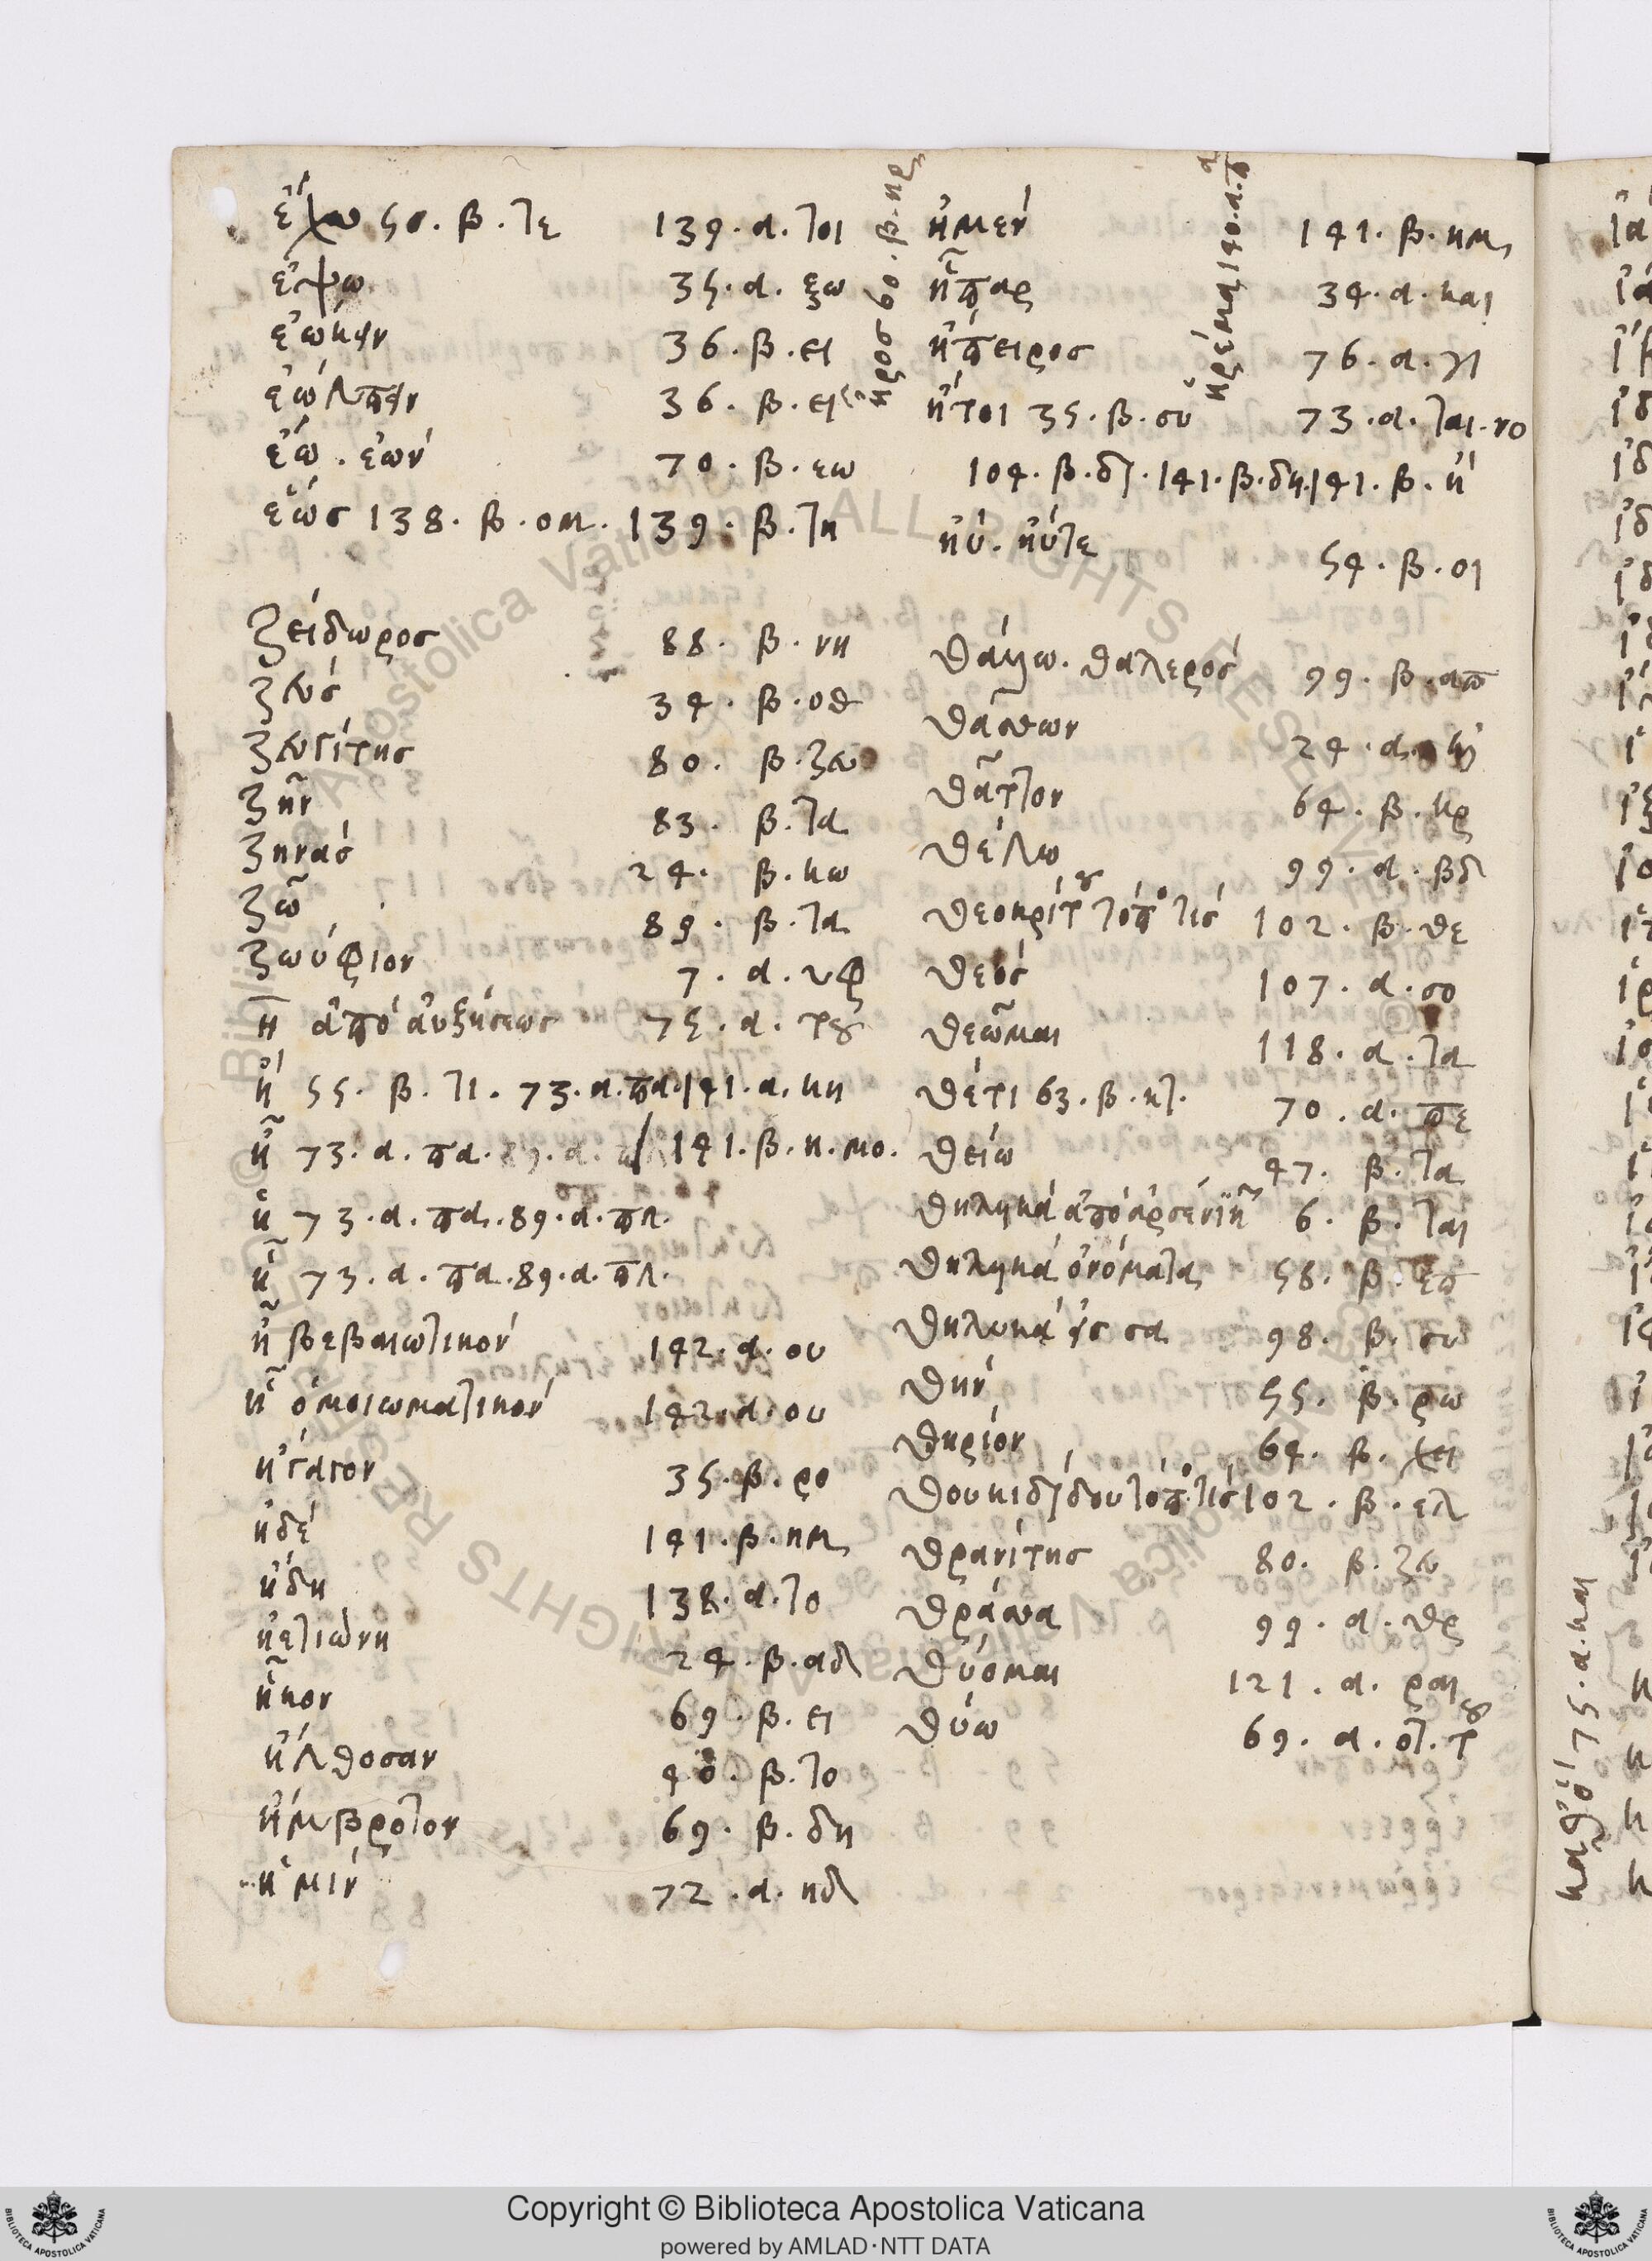 ἔχω 50. β. τε 139. α. τοι
ἕψω 35. α. ξω
ἐῴκειν 36. β. ει
ἐώλπειν 36. β. ει
ἐῶ. ἐών 70. β. εω
ἕως 138. β. ομ. 139. β. τη
ζείδωρος 88. β. νη
ζεύς 34. β. οθ
ζευγίτης 80. β. ζευ
ζῆν 83. β. τα
ζηνάς 24. β. κω
ζῶ 89. β. τα
ζωύφιον 7. α. υφ
η ἀπὸ αὐξήσεως 75. α. του
ἤ 55. β. τι. 73. α. πα. 141. α. κη
ἦ 73. α. πα. 141. β. η. μο.
ἡ 73. α. πα. 89. α. πλ.
ᾗ 73. α. πα. 89. α. πλ.
ἦ βεβαιωτικόν 142. α. ου
ᾗ ὁμοιωματικόν 142. α. ου
ἤγαγον 35. β. ρο
ἠδέ 141. β. ημ
ἤδη 138. α. το
ἠετιώνη 24. β. αδ
ἧκον 69. β. ει
ἤλθοσαν 40. β. το
ἤμβροτον 69. β. δη
ἡμίν 72. α. ηδ
ἦρος 60. β. ηρ
ἠμέν 141. β. ημ
ἧπαρ 34. α. και
ἤπειρος 76. α. γι
ἤτοι 35. β. συ 73. α. ται. νο
104. β. δι. 141. β. δη. 141. β. ἤ
ἠΰ. ἠΰτε 54. β. οι
ἠρέμα 140. α. π
θάλλω. θαλερός 99. β. απ
θάσσων 24. α.
θᾶττον 64. β. κρ
θέλω 99. α. βδ
θεοκρίτου τόπος τις 102. β. θε
θεός 107. α. σο
θεῶμαι 118. α. τα
θέτι 63. β. κτ. 70. α. πε
θείω 47. β. τα
θηλυκά ἀπὸ ἀρσενικῶν 6. β. ται
θηλυκά ὀνόματα 58. β. εσ
θηλυκά εἰς σα 98. β. συ
θήν 55. β. ρω
θηρίον 64. β. χει
θουκιδίδου τόπος τις 102. β. ελ
θρανίτης 80. β. ζευ
θρᾷσσα 99. α. θρ
θύομαι 121. α. ραι
θύω 69. α. οτ. του
καθό 75. α. και
Copyright © Biblioteca Apostolica Vaticana
powered by AMLAD·NTT DATA